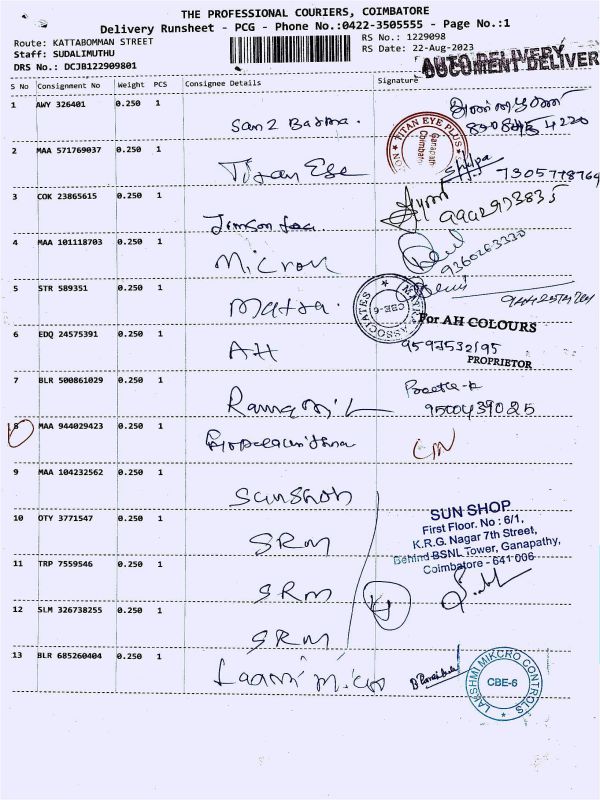 THE PROFESSIONAL COURIERS, COIMBATORE
Delivery Runsheet - PCG - Phone No.:0422-3505555 - Page No.:1
Route: KATTABOMMAN STREET
Staff: SUDALIMUTHU
DRS No.: DCJB122909801
RS No.: 1229098
RS Date: 22-Aug-2023
AUTO DELIVERY
DOCUMENT DELIVER
S No Consignment No Weight PCS Consignee Details Signature
1 AWY 326401 0.250 1
2 MAA 571769037 0.250 1 Titan Eye
TITAN EYE PLUS
Ganapathy
Coimbatore
Shilpa 7305778769
3 COK 23865615 0.250 1
4 MAA 101118703 0.250 1 Micron
9360263330
5 STR 589351 0.250 1 Matra.
MATRA ASSOCIATES
CBE-6
6 EDQ 24575391 0.250 1 AH
For AH COLOURS
9597532195
PROPRIETOR
7 BLR 500861029 0.250 1
9500439025
8 MAA 944029423 0.250 1
9 MAA 104232562 0.250 1 Sunshop
SUN SHOP
First Floor. No : 6/1,
K.R.G. Nagar 7th Street,
Behind BSNL Tower, Ganapathy,
Coimbatore - 641 006
10 OTY 3771547 0.250 1 SRM
11 TRP 7559546 0.250 1 SRM
12 SLM 326738255 0.250 1 SRM
13 BLR 685260404 0.250 1
LAKSHMI MIKCRO CONTROLS
CBE-6